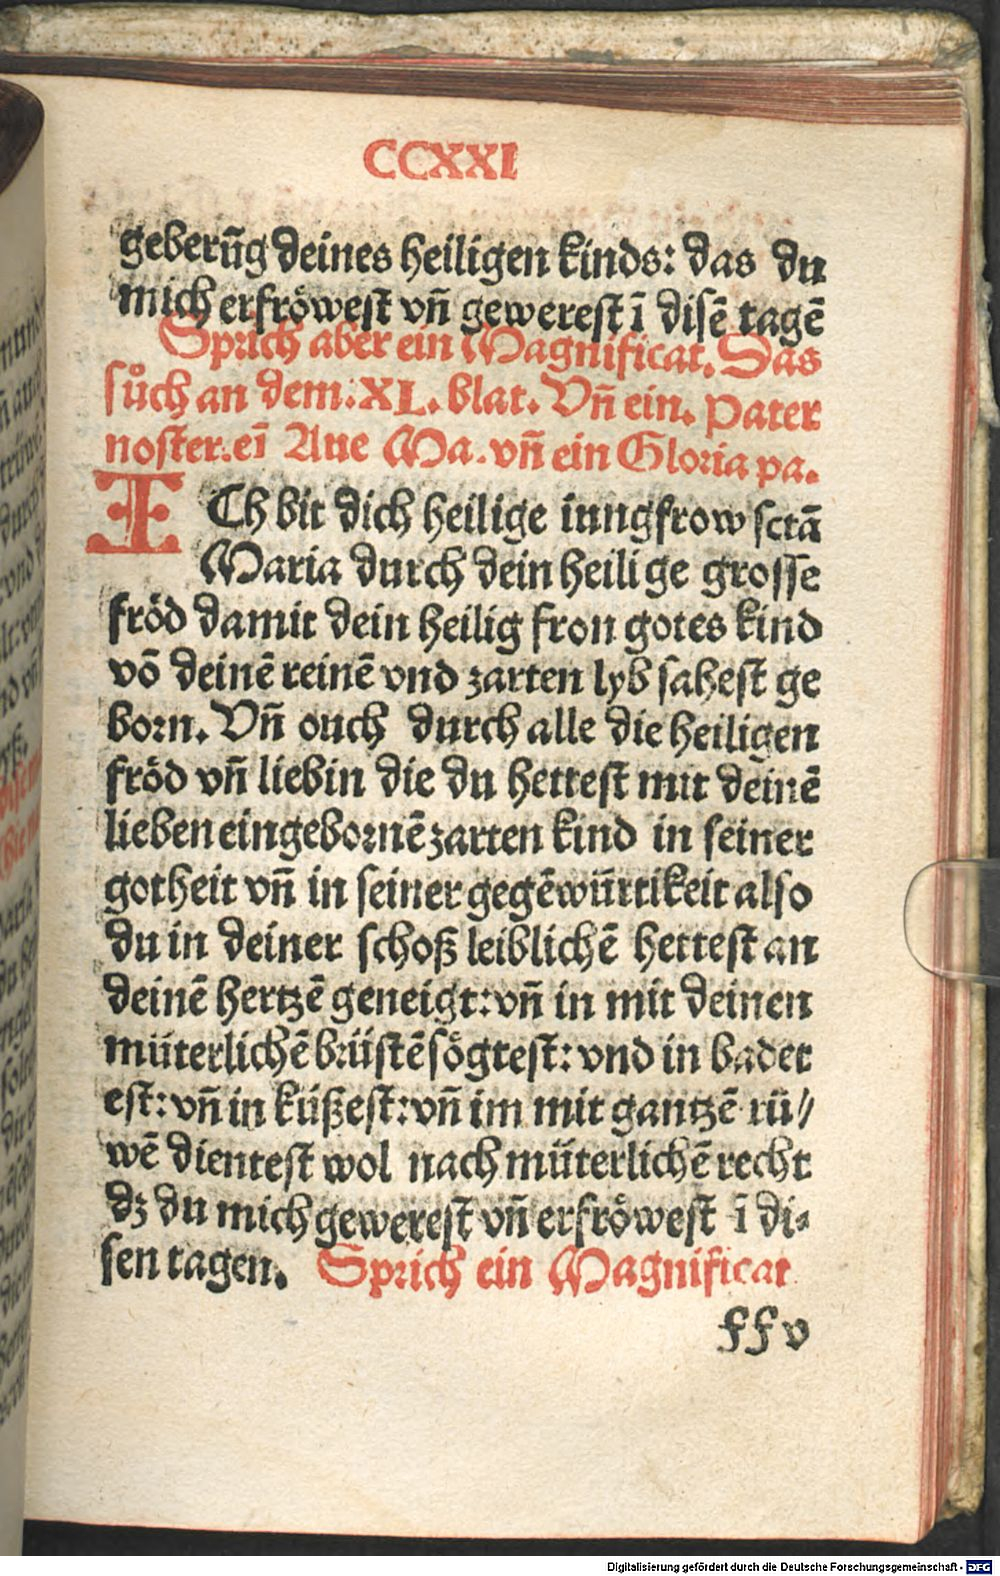 CCXXI
geberūg deines heiligen kinds: das du
mich erfröwest vn̄ gewerest ī disē tagē
Sprich aber ein Magnificat. Das
sůch an dem. XL. blat. Vn̄ ein. Pater
noster. eī Aue Ma. vn̄ ein Gloria pa.
ICh bit dich heilige iungfrow sctā
Maria durch dein heilige grosse
fröd damit dein heilig fron gotes kind
vō deinē reinē vnd zarten lyb sahest ge
born. Vn̄ ouch durch alle die heiligen
fröd vn̄ liebin die du hettest mit deinē
lieben eingebornē zarten kind in seiner
gotheit vn̄ in seiner gegēwürtikeit also
du in deiner schoß leiblichē hettest an
deinē hertzē geneigt: vn̄ in mit deinen
müterlichē brüstē sögtest: vnd in badet
est: vn̄ in küßest: vn̄ im mit gantzē rü//
wē dientest wol nach müterlichē recht
dz du mich gewerest vn̄ erfröwest ī di-
sen tagen. Sprich ein Magnificat
ff v
Digitalisierung gefördert durch die Deutsche Forschungsgemeinschaft - DFG